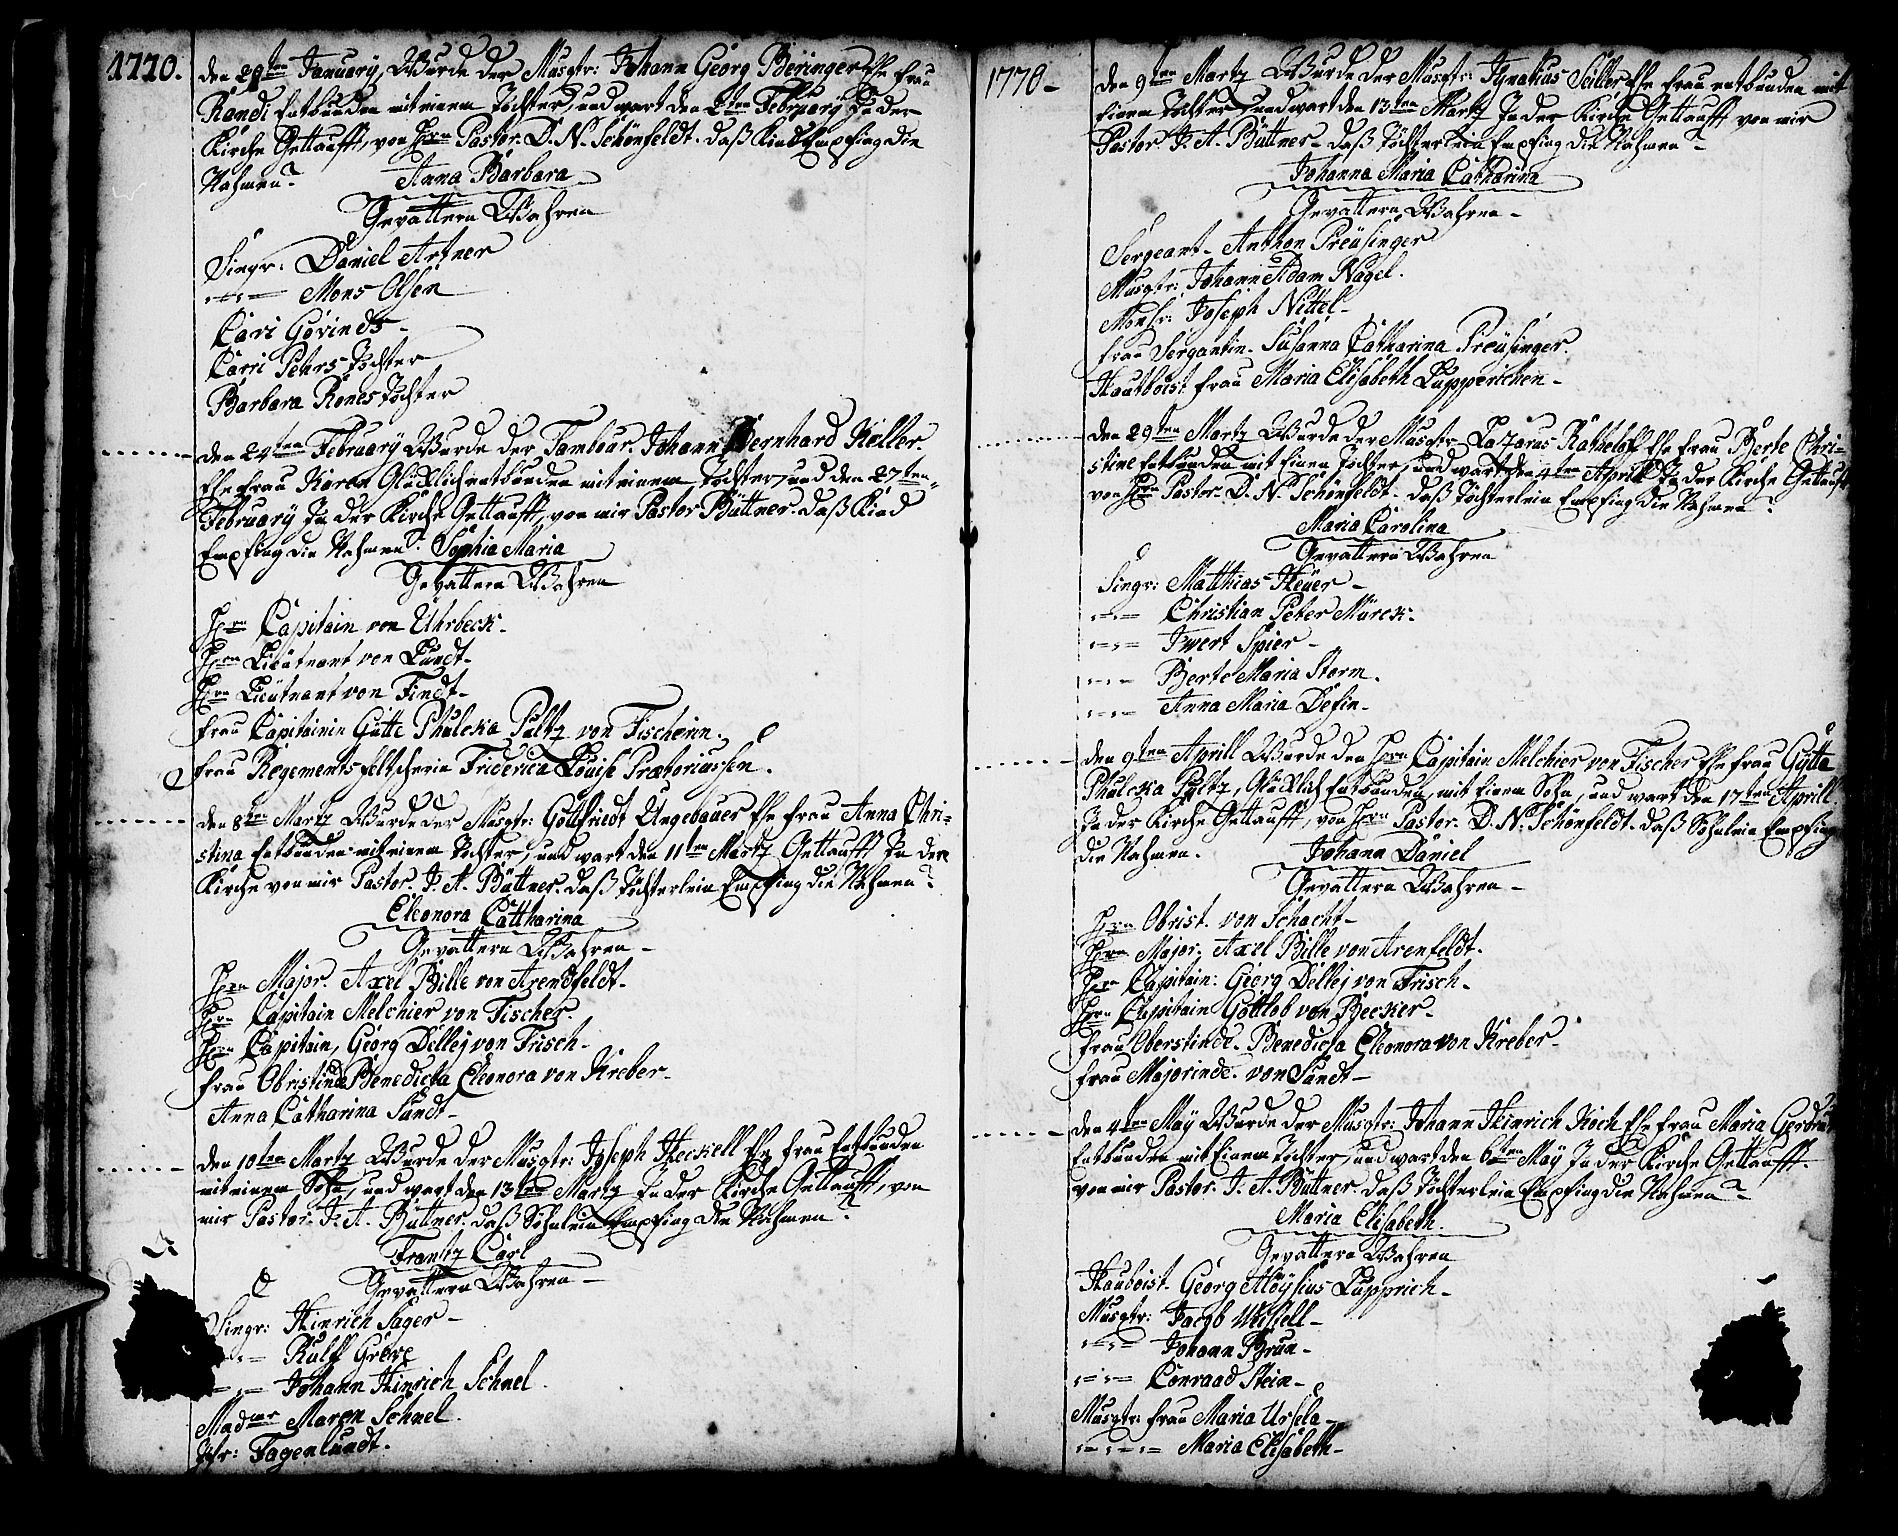 1770.
den 29ten January Wurde der Musqtr: Johann Georg Beringer Ehe frau
Randi Entbunden mit einem Töchter, und wart den 2ten February In der
Kirche Gettaufft, von Hrn Pastor. D. N. Schönfeldt. daß Kind Empfing die
Nahmen? Anna Barbara
Gevattern Wahren
Singr: Daniel Artner
Mons Olsen
Cari Gövinds-
Carri Pehrs Tochter
Barbara Rones tochter
den 24ten February Wurde der Tambour. Johann Bernhard Keller.
Ehe frau Karen Glücklich entbunden mit einem Töchter, und den 27ten
February In der Kirche Gettaufft, von mir Pastor Büttner. daß Kind
Empfing die Nahmen? Sophia Maria
Gevattern Wahren
Hrn Capitain von Uhrbeck-
Hrn Lieutnant von Lundt-
Hrn Lieutnant von Findt-
frau Capitainin Gütte Phuleka Pultz von Fischerin.
frau Regements feltscherin Friderica Louise Prætoriussen.
den 8ten Martz Wurde der Musqtr: Gottfriedt Ungebauer Ehe frau Anna Chri-
stina Entbunden mit einem Töchter, und wart den 11ten Martz Gettaufft In der
Kirche von mir Pastor. J. A. Büttner. daß Töchterlein Empfing die Nahmen?
Eleonora Cattharina
Gevattern Wahren-
Hrn Major. Axel Bille von Arendfeldt-
Hrn Capitain Melchier von Fischer.
Hrn Capitain, Georg Dellej von Frisch-
frau Obristinde Benedicta Eleonora von Kreber-
Anna Catharina Sandt-
den 10ten Martz Wurde der Musqtr: Joseph Heckell Ehe frau Entbunden
mit einem Sohn, und wart den 13ten Martz In der Kirche Gettaufft, von
mir Pastor. J. A. Büttner. daß Söhnlein Empfing die Nahmen?
Frantz Carl
Gevattern Wahren-
Singr: Hinrich Sager-
Rulff Grewe
Johann Hinrich Schnel.
Madme Maren Schnel.
Jfr: Fagenlundt.
1770-
den 9ten Martz Wurde der Musqtr: Ignatius Seiller Ehe frau entbunden mit
Einem Töchter, und wart den 13ten Martz In der Kirche Gettaufft von mir
Pastor J. A. Büttner- daß Töchterlein Empfing die Nahmen?
Johanna Maria Catharina
Gevattern Wahren-
Sergeant- Anthon Preüsinger
Musqtr: Johann Adam Nagel.
Monsr: Joseph Nittel-
frau Sergantin- Susanna Catharina Preüsinger.
Hautboist frau Maria Elisabeth Lupperichen-
den 29ten Martz Wurde der Musqtr- Lazarus Ratheloff Ehe frau Berte Chri-
stine Entbunden mit Einen Töchter, und wart den 4ten Aprill In der Kirche Gettauft
von Hrn Pastor. D. N. Schönfeldt- daß Töchterlein Empfing die Nahmen?
Maria Carolina
Gevattern Wahren
Singr: Matthias Heüer-
Christian Peter Mürck-
Iwert Spier-
Berte Maria Storm.
Anna Maria Defin-
den 9ten Aprill Wurde den Hrn Capitain Melchier von Fischer Ehe frau Gytta
Phuleka Pyltz, Glücklich Entbunden, mit Einem Sohn, und wart den 17ten Aprill.
In der Kirche Gettaufft, von Hrn Pastor. D. N. Schönfeldt. daß Söhnlein Empfing
die Nahmen. Johann Daniel
Gevattern Wahren-
Hrn Obrist. von Schacht-
Hrn Major. Axel Bille von Arenfeldt.
Hrn Capitain: Georg Dellej von Frisch-
Hrn Capitain Gottlob von Becker-
frau Oberstinde- Benedicta Eleonora von Kreber-
frau Majorinde. von Sandt-
den 4ten Maÿ Wurde der Musqtr: Johann Hinrich Koch Ehe frau Maria Gerdrut
Entbunden mit Einem Töchter, und wart den 6ten Maÿ In der Kirche Gettaufft-
von mir Pastor. J. A. Büttner. daß Töchterlein Empfing die Nahmen?
Maria Elisabeth.
Gevattern Wahren
Hauboist- Georg Aloÿsius Lupprich-
Musqtr: Jacob Wessell-
Johann Brun-
Conraad Stein-
Musqtr: frau Maria Ursela-
Maria Elisabeth-